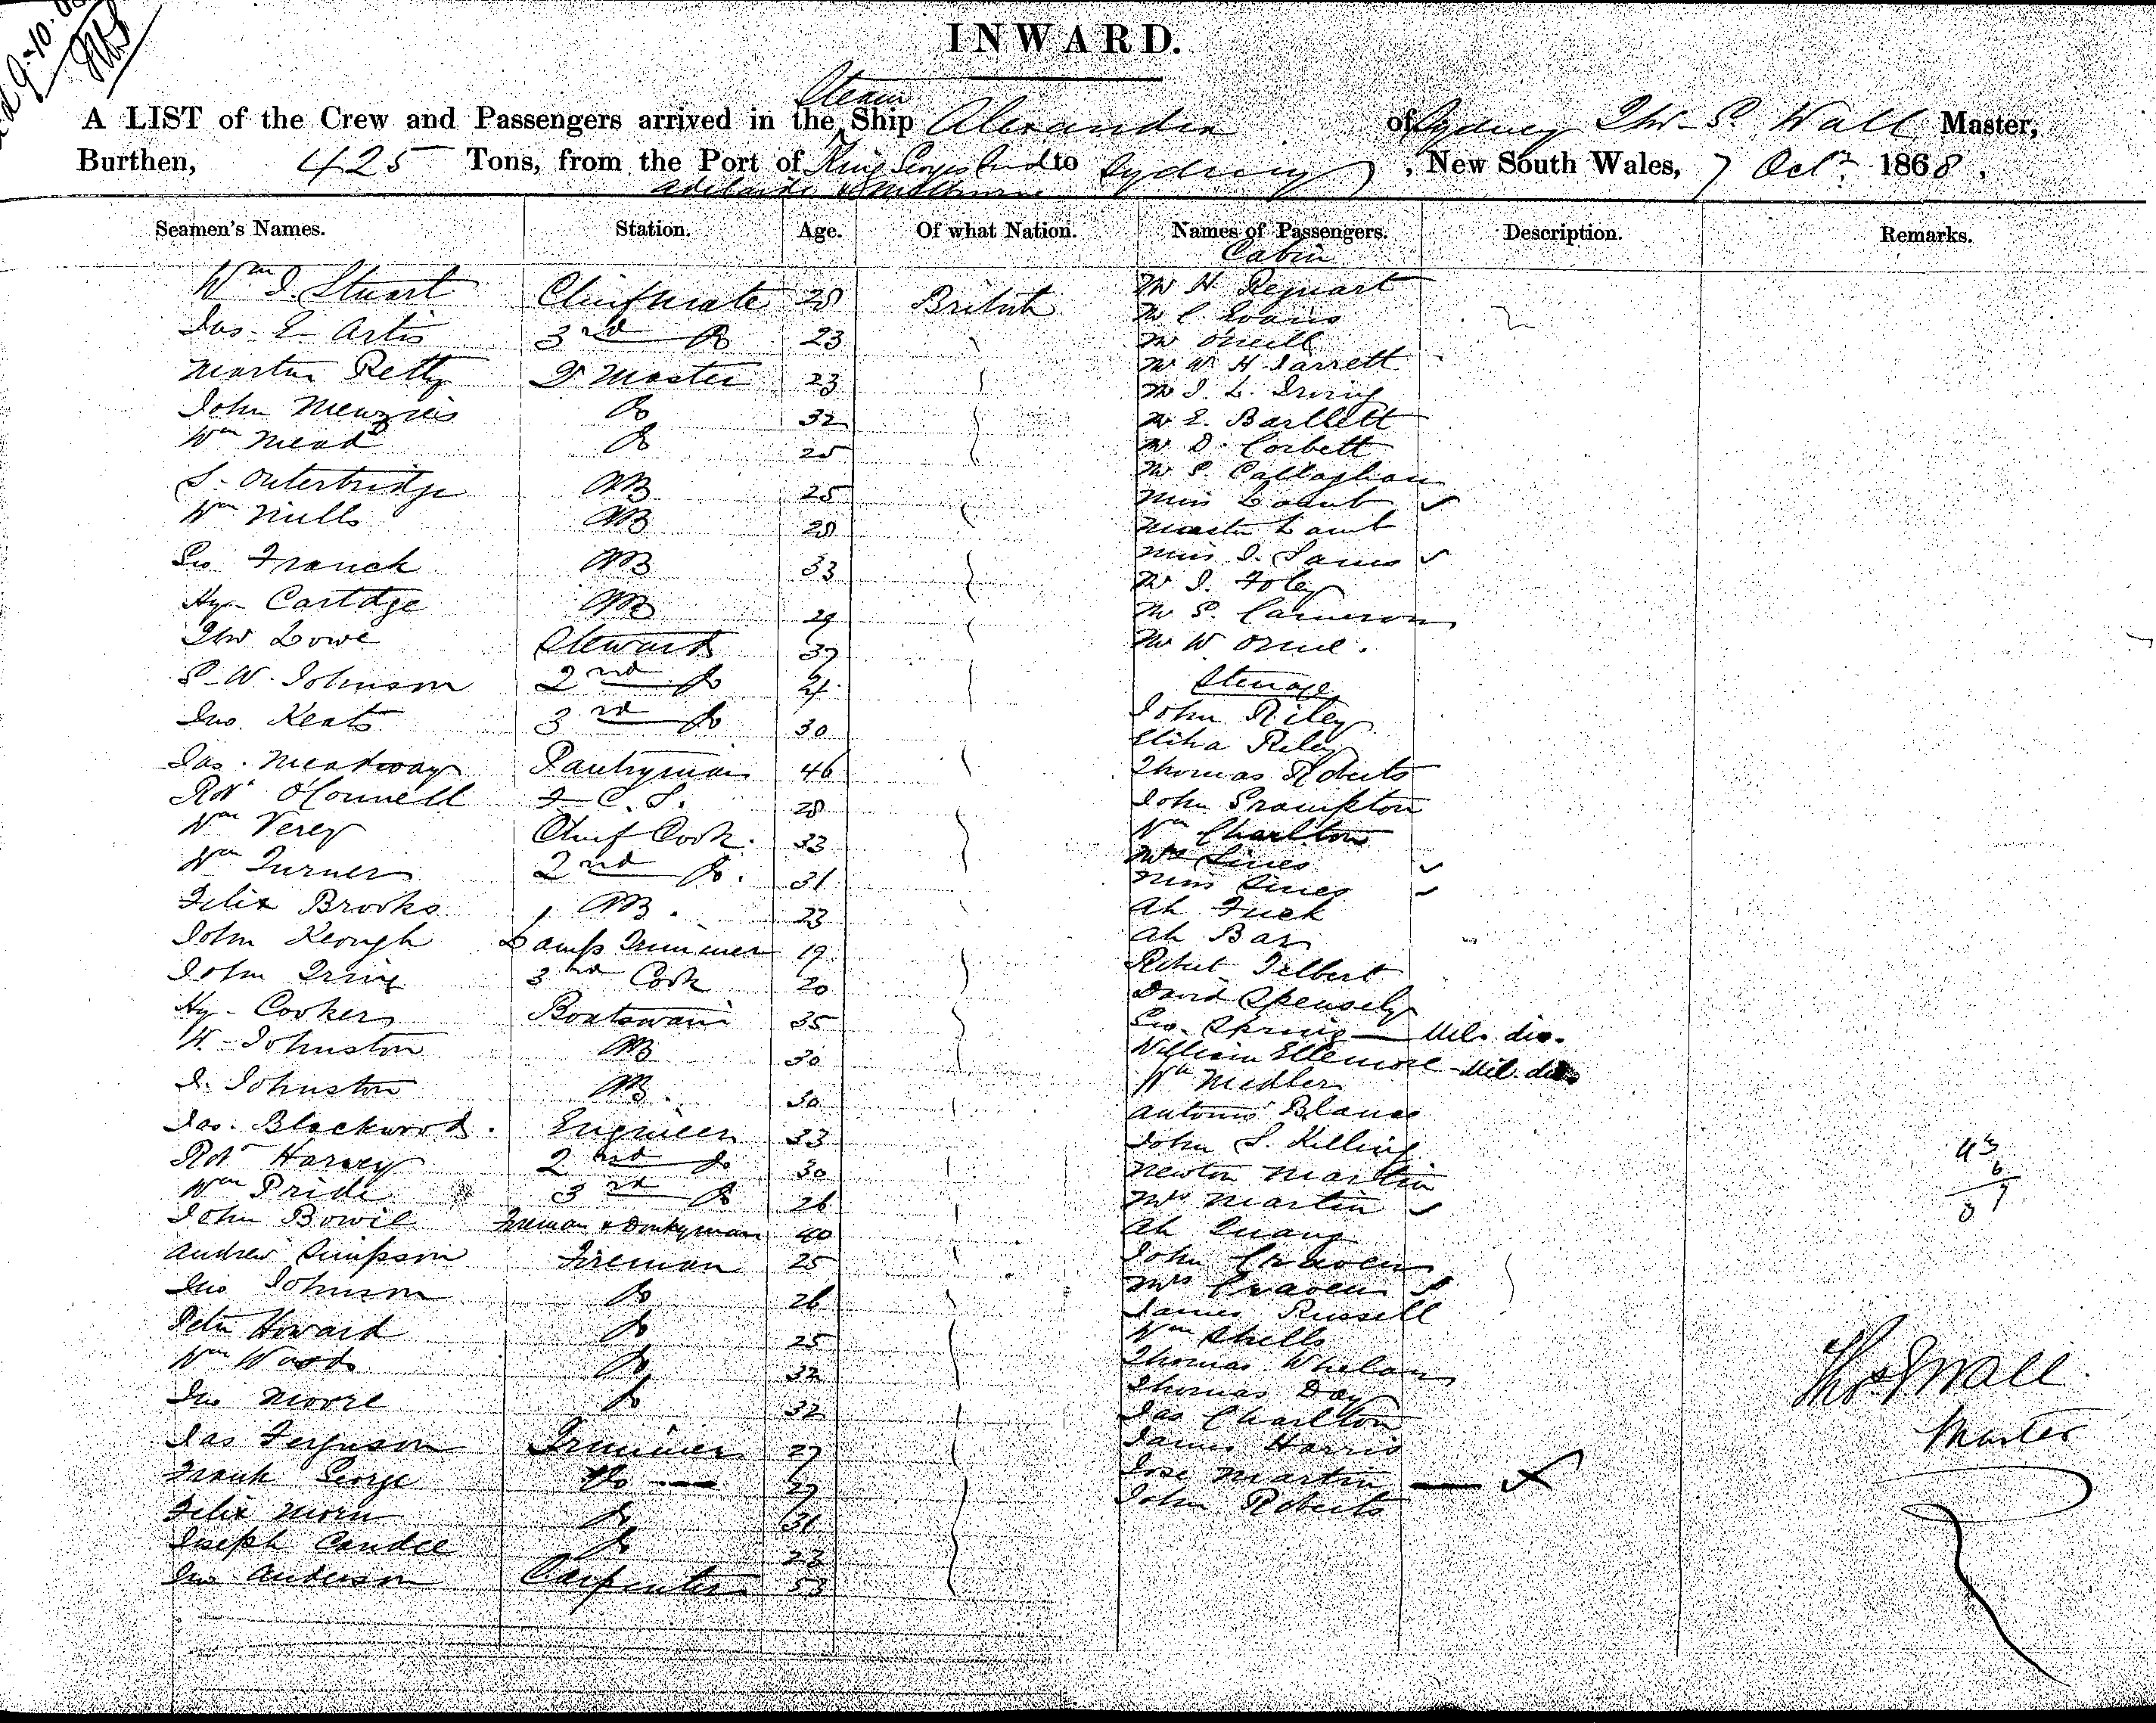 INWARD.
Steam
A LIST of the Crew and Passengers arrived in the Ship Alexandra of Sydney Thos. S. Wall Master,
Burthen, 425 Tons, from the Port of King Georges Sound to Sydney, New South Wales, 7 Octr. 1868.
Adelaide & Melbourne
Seamen's Names. Station. Age. Of what Nation. Names of Passengers. Description. Remarks.
Cabin
Wm J. Stuart Chief Mate 28 British
Jas. E Artis 3rd Do 23
Martin Petty Qr Master 23
John Menzies Do 32
Wm Mead Do 25
S. Outerbridge AB 25
Wm Mills AB 28
Geo Franck AB 33
Hy. Cartdge AB 29
Thos Lowe Steward 37
S. W. Johnson 2nd Do 24
Jno. Keats 3rd Do 30
Jas. Meadway Pantryman 46
Robt O'Connell F. C. S. 28
Wm Verey Chief Cook. 33
Wm Turner 2nd Do. 31
Felix Brooks AB. 23
John Keough Lamp Trimmer 19
John Irving 3rd Cook 20
Hy. Cooker Boatswain 35
W. Johnston AB 30
J. Johnston AB. 30
Jas. Blackwood. Engineer 33
Robt Harvey 2nd Do 30
Wm Pride 3rd Do 26
John Bowie Fireman & Donkeyman 40
Andrew Simpson Fireman 25
Jno Johnson Do 26
Peter Howard Do 25
Wm Woods Do 32
Jno Moore Do 32
Jas Ferguson Trimmer 27
Frank George Do 27
Felix Morn Do 31
Joseph Candle Do 23
Jno Anderson Carpenter 53
Mr H. Regnart
Mr C Evans
Mr Oneill
Mr W. H. Jarrett
Mr J. L. Irving
Mr E. Bartlett
Mr D. Corbett
Mr P. Callaghan
Miss Lamb
Master Lamb
Miss J. James
Mr J. Foley
Mr P. Cameron
Mr W Orme.
Steerage
John Riley
Eliha Riley
Thomas Roberts
John Frampton
Wm Charlton
Mrs Sines
Miss Sines
Ah Fuck
Ah Bar
Robert Gilbert
David Spensely
Geo. Spring — Mil. dis.
William Ellemore - Mil. dis
Wm Medler
Antonio Blanco
John S. Killing
Newton Martin
Mrs Martin
Ah Quang
John Craven
Mrs Craven
James Russell
Wm Shills
Thomas Whelan
Thomas Day
Jas Charlton
James Harris
Jose Martin — X
John Roberts
43
6
Thos S Wall
Master